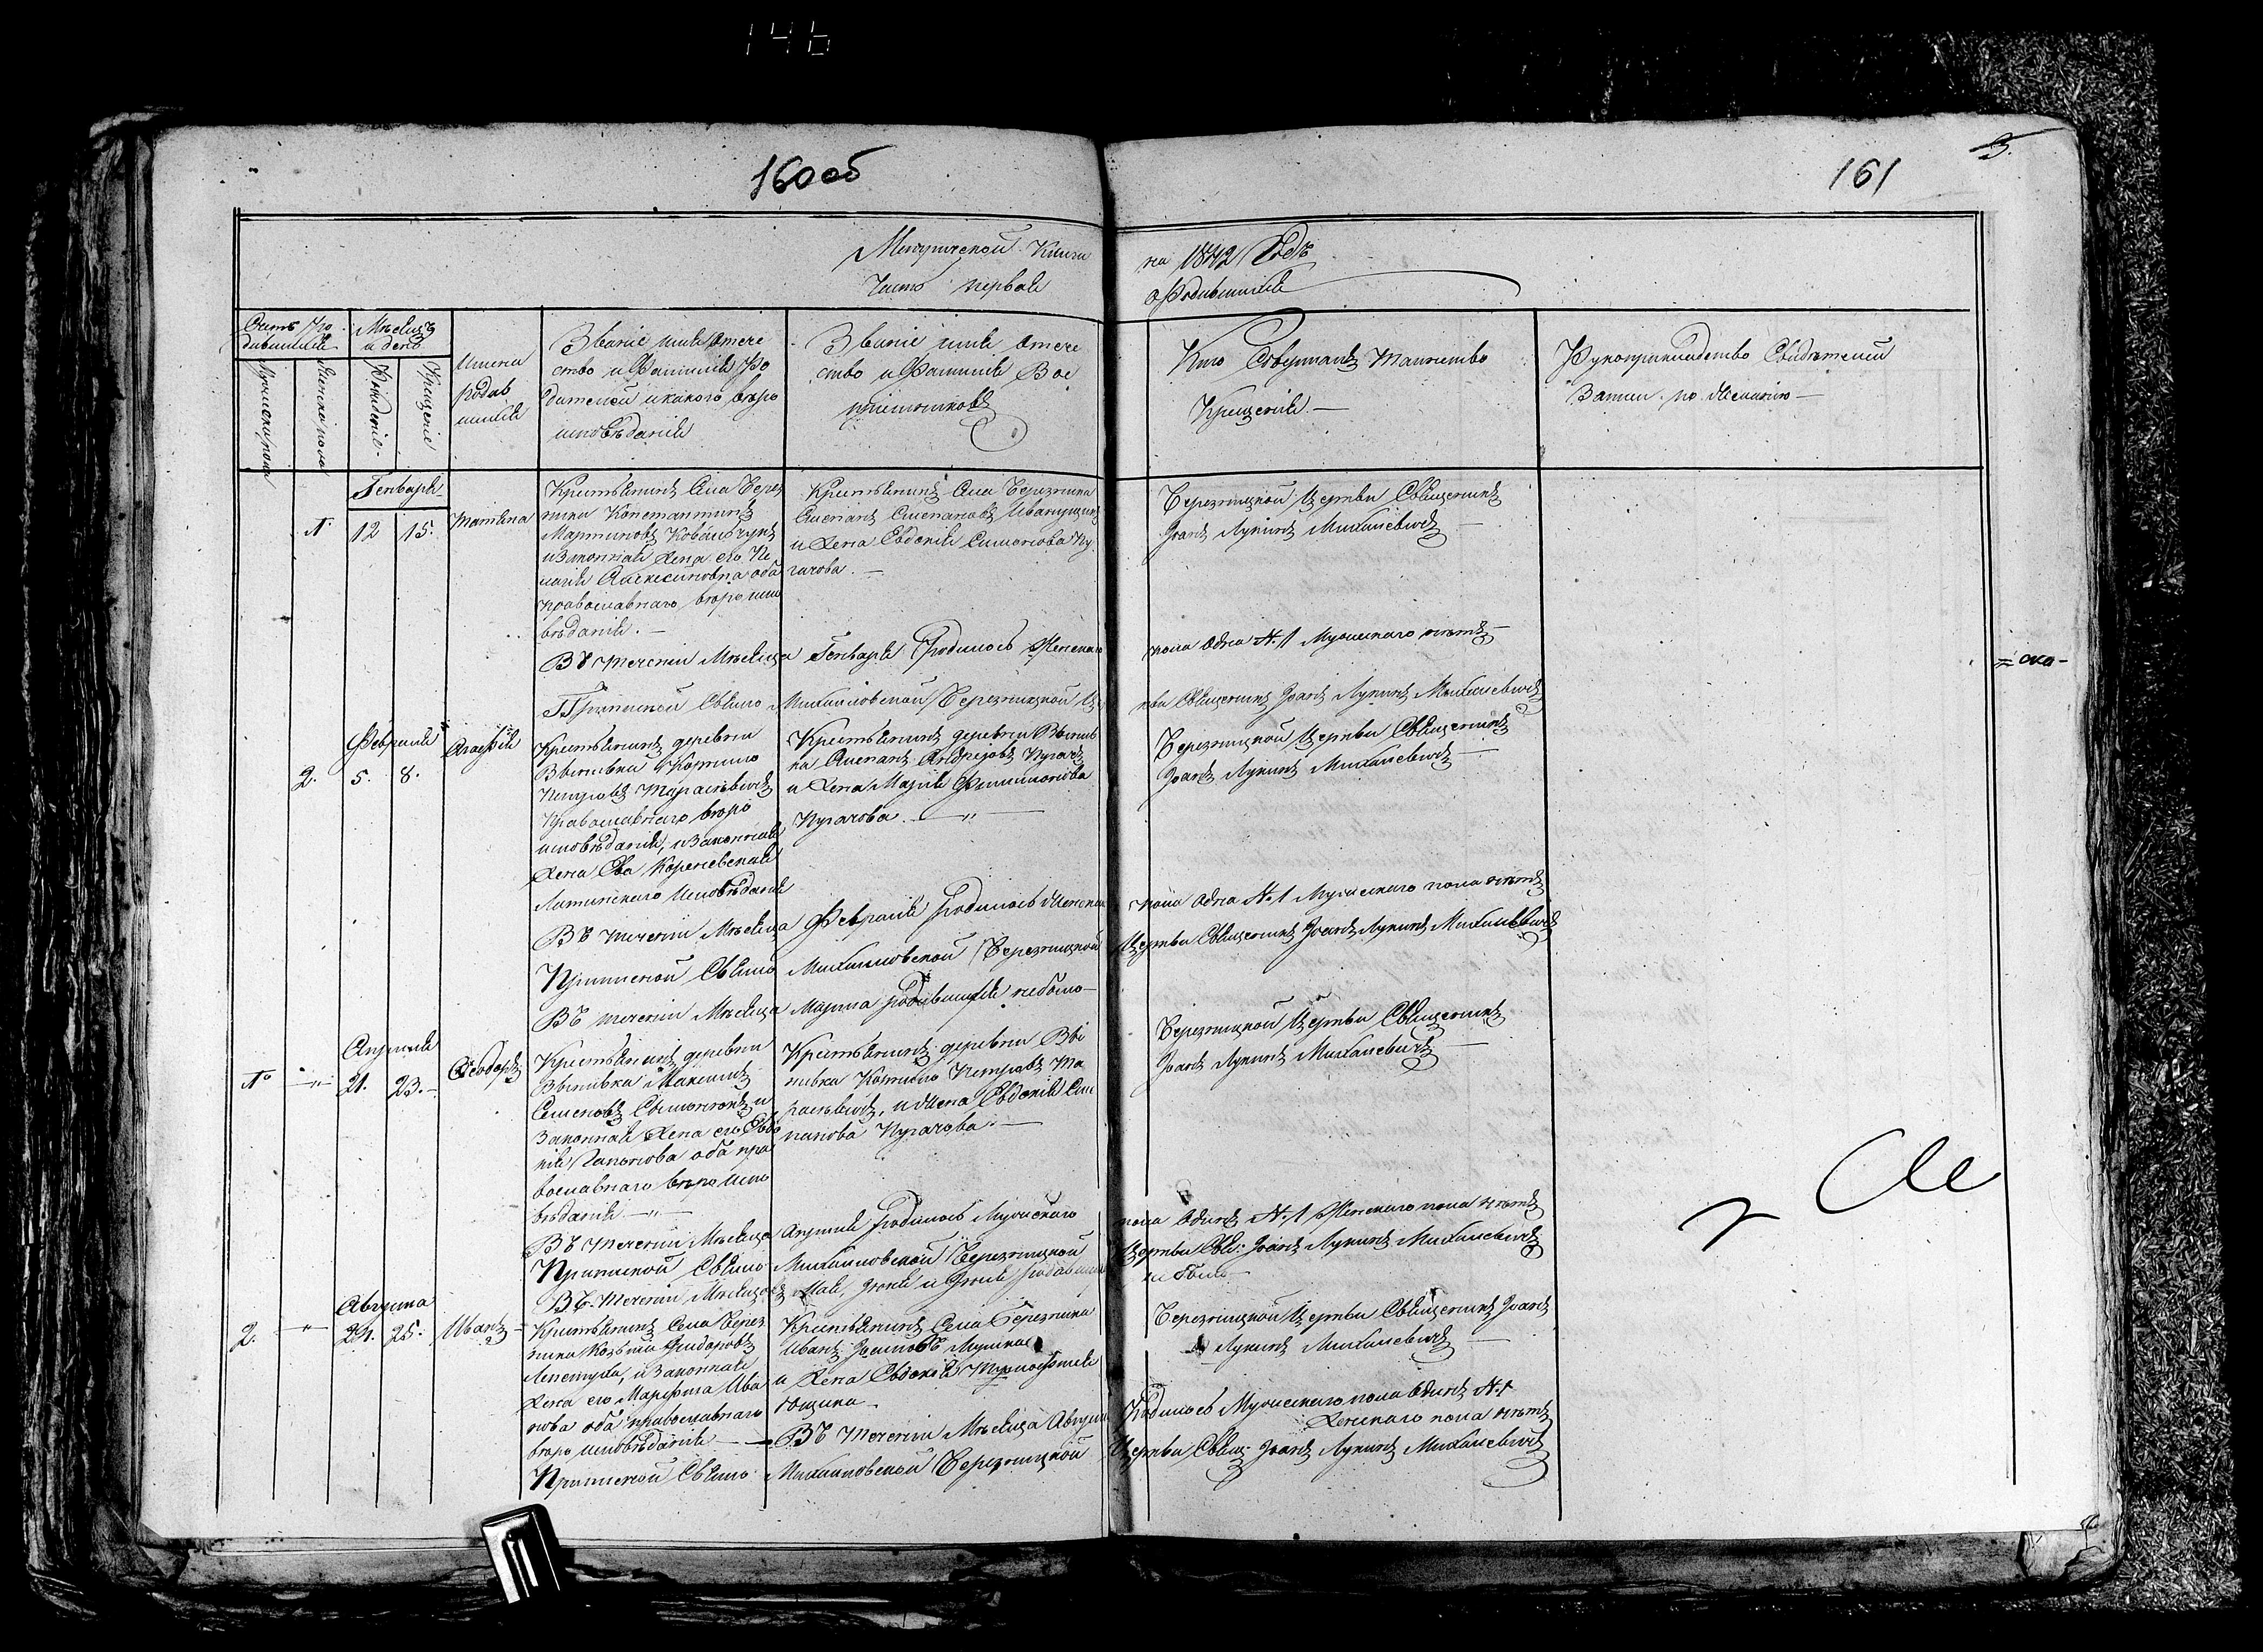 146
160об
161
3.
Метрической Книги на 1842 Годъ
Часть первая о Родившихся
Счетъ Ро
дившихся
Мужеска пола
Женска пола
Мѣсяцъ
и день
Рожденіе
Крещеніе
Имена
родив
шихся
Званіе имя отече
ство и Фамилія Ро
дителей и какого вѣро
исповѣданія
Званіе имя отече
ство и Фамилія Вос
пріемниковъ
Кто Совершалъ Таинство
Крещенія. —
Рукоприкладство Свидѣтелей
Записи по желанію —
Генваря
1 12 15.
Татіяна
Крестьянинъ Села Берез
ника Константинъ
Мартиновъ
и Законная Жена его Пе
лагія Алексиновна оба
православнаго вѣроиспо
вѣданія. —
Крестьянинъ Села Березника
Степанъ Степановъ
и Жена Евдокія Симонова Пу
гачова. —
Березницкой Церкви Священникъ
Іоанъ Лукинъ Михалевичъ —
Въ теченіи Мѣсяца Генваря Родилось Женскаго пола Одна №. 1 Мужескаго нѣтъ —
Приписной Свято Михайловской Березницкой Церкви Священникъ Іоанъ Лукинъ Михалевичъ
Февраля
2. 5. 8.
Агафія
Крестьянинъ деревни
Корнило
Петровъ Тарасѣвичъ
Православнаго вѣро
исповѣданія, и Законная
Жена Ева
Латинскаго Исповѣданія
Крестьянинъ деревни
Степанъ Андреіовъ Пугачъ
и Жена Марія Филимонова
Пугачова. — „ —
Березницкой Церкви Священникъ
Іоанъ Лукинъ Михалевичъ —
Въ теченіи Мѣсяца Февраля родилось Женскаго пола Одна №. 1 Мужескаго пола нѣтъ
Приписной Свято Михайловской Березницкой Церкви Священникъ Іоанъ Лукинъ Михалевичъ
Въ теченіи Мѣсяца Марта родившихся небыло —
Апреля
1. — „ — 21. 23. —
Ѳеодоръ
Крестьянинъ деревни
Максимъ
Семеновъ
Законная Жена его Евдо
кія Гапонова оба пра
вославнаго вѣроиспо
вѣданія — „ —
Крестьянинъ деревни
Корнило Петровъ Та
расѣвичъ, и Жена Евдокія Сте
панова Пугачова. —
Березницкой Церкви Священникъ
Іоанъ Лукинъ Михалевичъ —
Въ теченіи Мѣсяца Апреля родилось Мужескаго пола Одинъ №. 1 Женскаго пола нѣтъ
Приписной Свято Михайловской Березницкой Церкви Свящ: Іоанъ Лукинъ Михалевичъ
Въ теченіи Мѣсяцовъ Мая, Іюня и Іюля родившихся не было —
Августа
2. — „ — 24. 25.
Иванъ
Крестьянинъ Села Берез
ника
и Законная
Жена его Марфа Ива
нова оба православнаго
вѣроисповѣданія —
Крестьянинъ Села Березника
Иванъ
и Жена Евдокія Тимофіева
Березницкой Церкви Священникъ Іоанъ
Лукинъ Михалевичъ —
Въ теченіи Мѣсяца Августа Родилось Мужескаго пола Одинъ №. 1
Женскаго пола нѣтъ
Приписной Свято Михайловской Березницкой Церкви Свящ: Іоанъ Лукинъ Михалевичъ